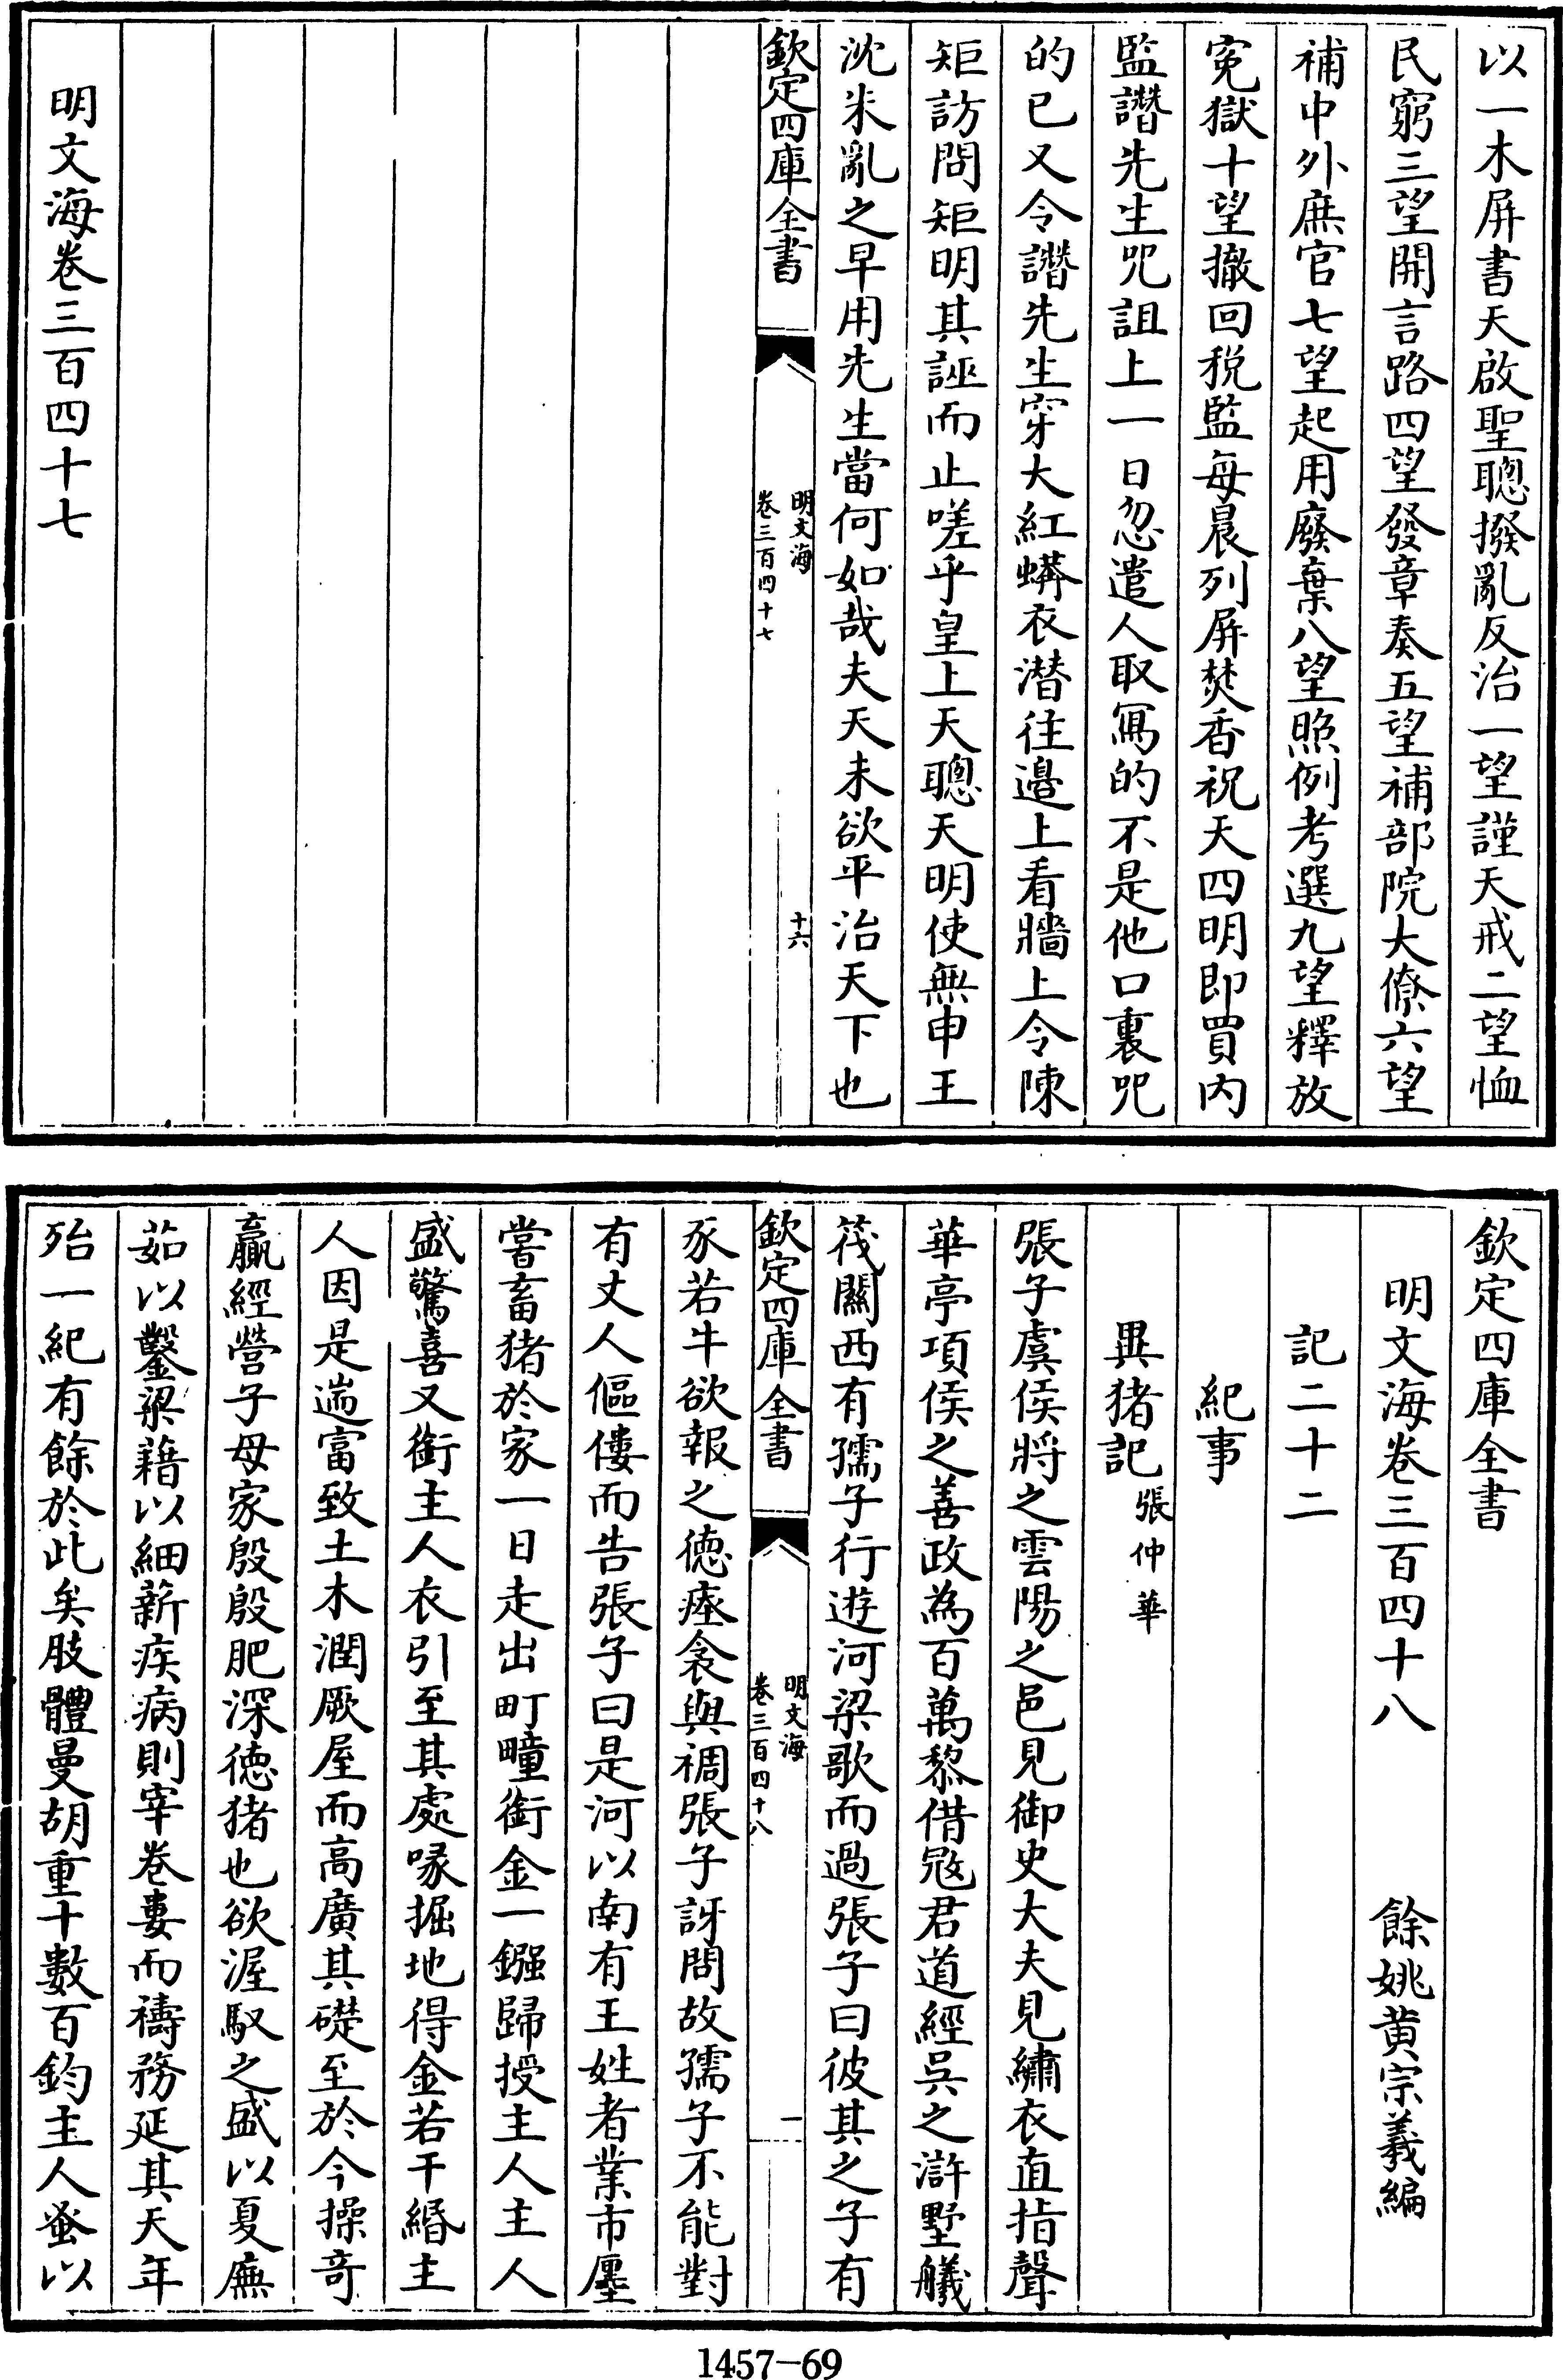 以一木屏書天啟聖聰撥亂反治一望謹天戒二望恤
民窮三望開言路四望發章奏五望補部院大僚六望
補中外庶官七望起用廢棄八望照例考選九望釋放
寃獄十望撤回税監每晨列屏焚香祝天四明即買内
監譖先生咒詛上一日忽遣人取寫的不是他口裏咒
的已又令譖先生穿大紅蟒衣潜往邉上看牆上令陳
矩訪問矩明其誣而止嗟乎皇上天聰天明使無申王
沈朱亂之早用先生當何如哉夫天未欲平治天下也
欽定四庫全書
明文海
卷三百四十七
十六
明文海卷三百四十七
欽定四庫全書
明文海卷三百四十八 餘姚黄宗羲編
記二十二
紀事
異猪記 張仲華
張子虞侯將之雲陽之邑見御史大夫見繡衣直指聲
華亭項侯之善政為百萬黎借冦君道經吳之滸墅艤
筏關西有孺子行遊河梁歌而過張子曰彼其之子有
欽定四庫全書
明文海
卷三百四十八
一
豕若牛欲報之徳瘞衾與裯張子訝問故孺子不能對
有丈人傴僂而告張子曰是河以南有王姓者業市廛
嘗畜猪於家一日走出町疃銜金一鏹歸授主人主人
盛驚喜又銜主人衣引至其處喙掘地得金若干緡主
人因是遄富致土木潤厥屋而高廣其礎至於今操竒
贏經營子母家殷殷肥深徳猪也欲渥馭之盛以夏廡
茹以鑿粱藉以細薪疾病則宰卷婁而禱務延其天年
殆一紀有餘於此矣肢體曼胡重十數百鈞主人蚤以
1457-69